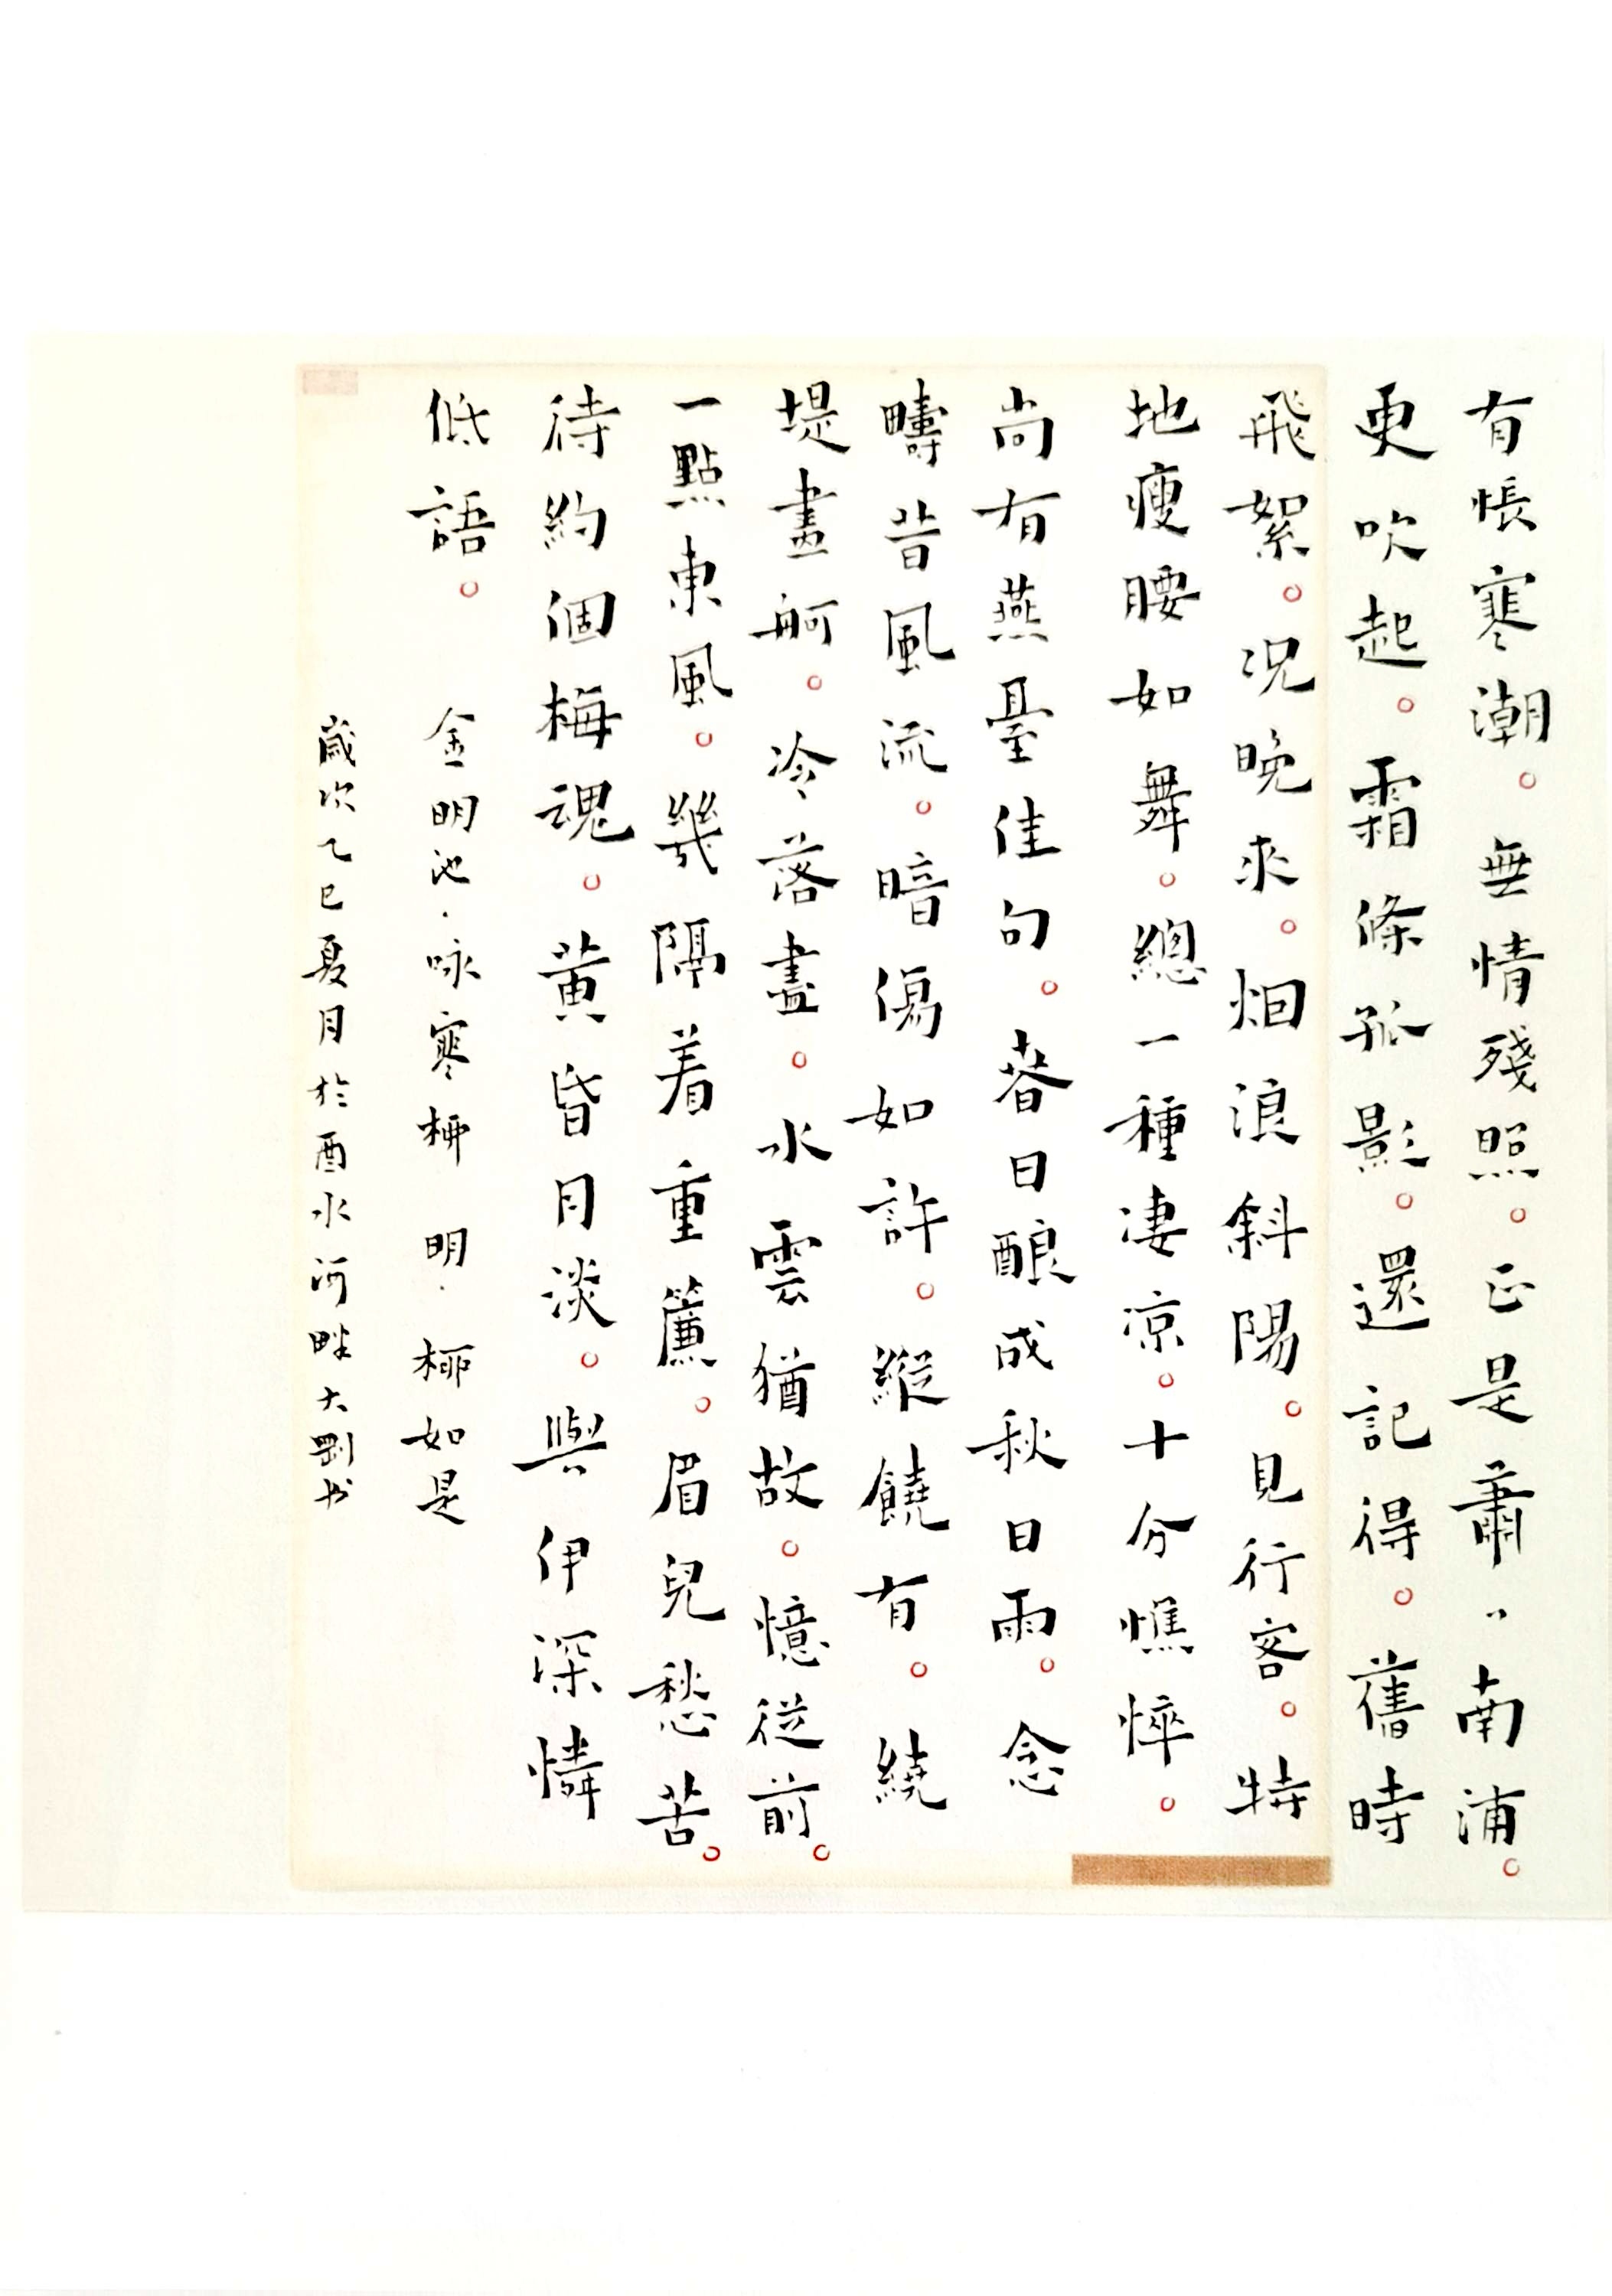 有悵寒潮。無情殘照。正是蕭〻南浦。
更吹起。霜條孤影。還記得。舊時
飛絮。况晚來。烟浪斜陽。見行客。特
地瘦腰如舞。總一種凄凉。十分憔悴。
尚有燕臺佳句。春日釀成秋日雨。念
疇昔風流。暗傷如許。縱饒有。繞
堤畫舸。冷落盡。水雲猶故。憶從前。
一點東風。幾隔着重簾。眉兒愁苦。
待約個梅魂。黄昏月淡。與伊深憐
低語。 金明池·咏寒柳 明·柳如是
歲次乙巳夏月於酉水河畔大剛书